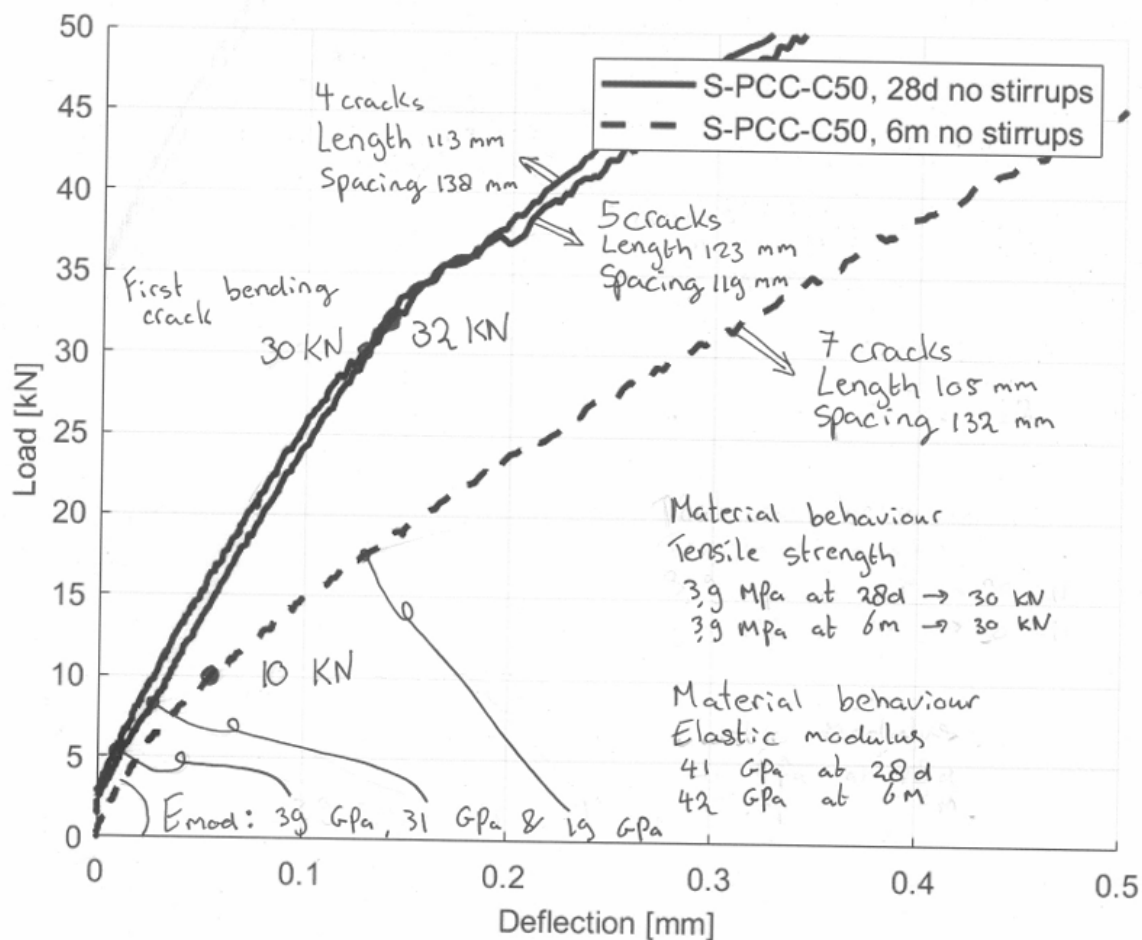 50
45
40
35
30
25
20
15
10
5
0
Load [kN]
0
0.1
0.2
0.3
0.4
0.5
Deflection [mm]
S-PCC-C50, 28d no stirrups
S-PCC-C50, 6m no stirrups
4 cracks
Length 113 mm
Spacing 138 mm
5 cracks
Length 123 mm
Spacing 119 mm
First bending
crack
30 KN
32 KN
7 cracks
Length 105 mm
Spacing 132 mm
10 KN
Material behaviour
Tensile strength
3,9 MPa at 28d → 30 KN
3,9 MPa at 6m → 30 KN
Material behaviour
Elastic modulus
41 GPa at 28d
42 GPa at 6M
Emod: 39 GPa, 31 GPa & 19 GPa